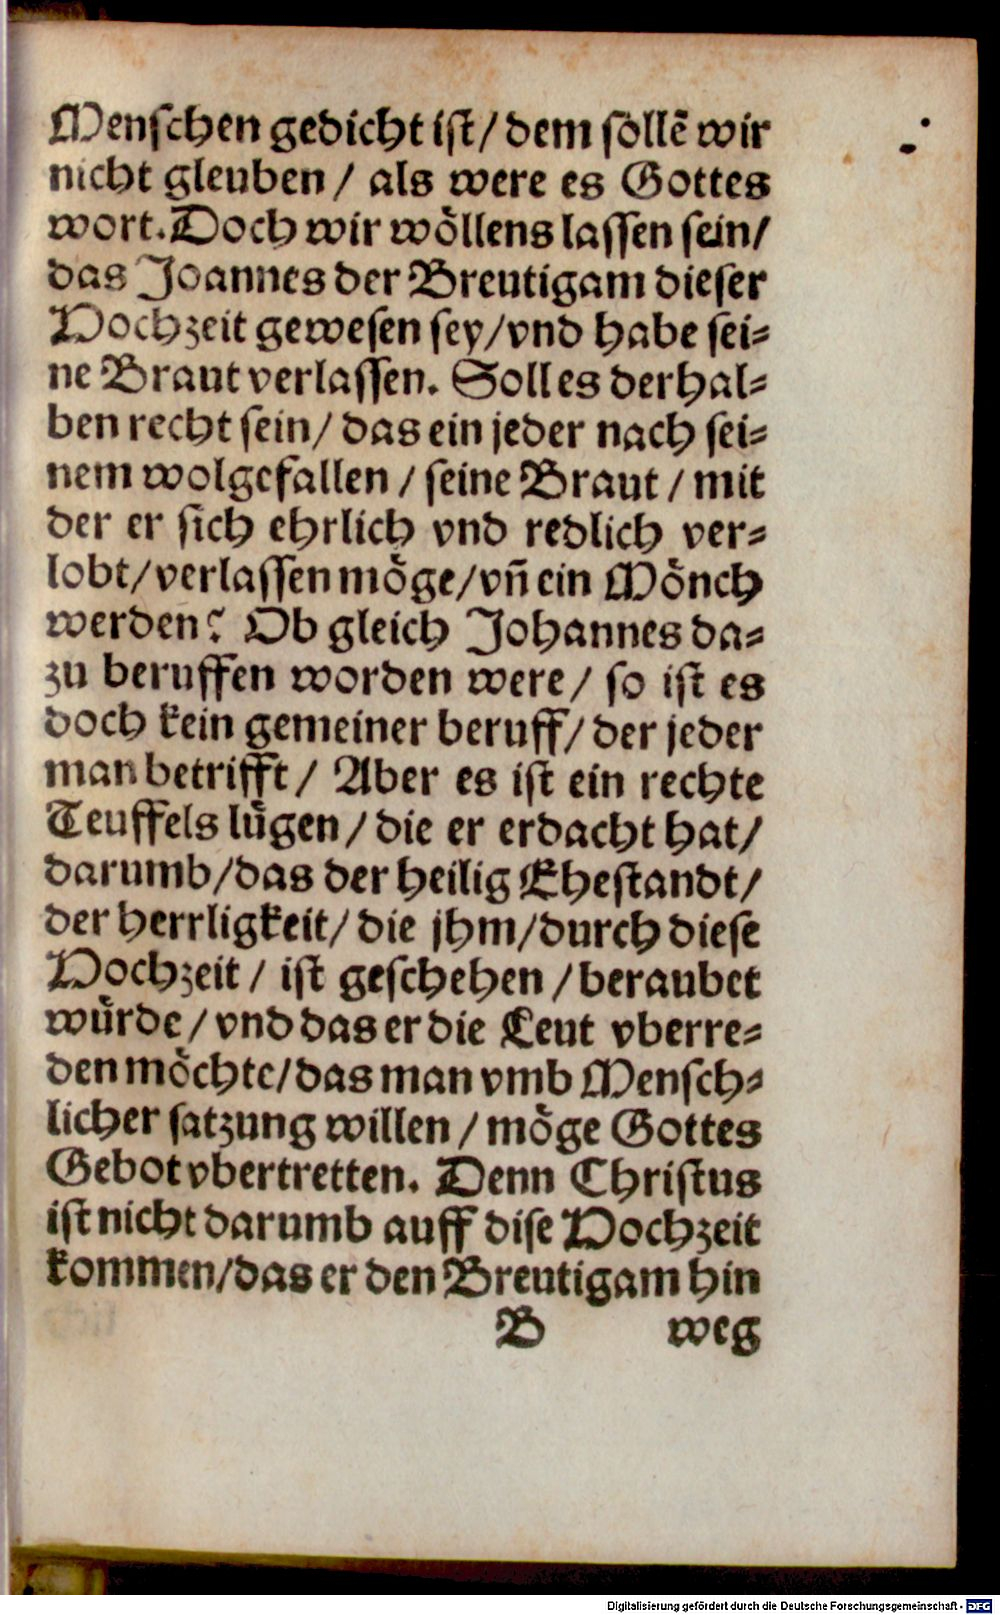 Menschen gedicht ist/ dem sollē wir
nicht gleuben/ als were es Gottes
wort. Doch wir wöllens lassen sein/
das Joannes der Breutigam dieser
Hochzeit gewesen sey/vnd habe sei=
ne Braut verlassen. Soll es derhal=
ben recht sein/ das ein jeder nach sei=
nem wolgefallen/ seine Braut/ mit
der er sich ehrlich vnd redlich ver=
lobt/verlassen möge/vñ ein Mönch
werden? Ob gleich Johannes da=
zu beruffen worden were/ so ist es
doch kein gemeiner beruff/ der jeder
man betrifft/ Aber es ist ein rechte
Teuffels lügen/ die er erdacht hat/
darumb/das der heilig Ehestandt/
der herrligkeit/ die jhm/durch diese
Hochzeit/ ist geschehen/beraubet
würde/ vnd das er die Leut vberre=
den möchte/das man vmb Mensch=
licher satzung willen/ möge Gottes
Gebot vbertretten. Denn Christus
ist nicht darumb auff dise Hochzeit
kommen/das er den Breutigam hin
B weg
Digitalisierung gefördert durch die Deutsche Forschungsgemeinschaft - DFG